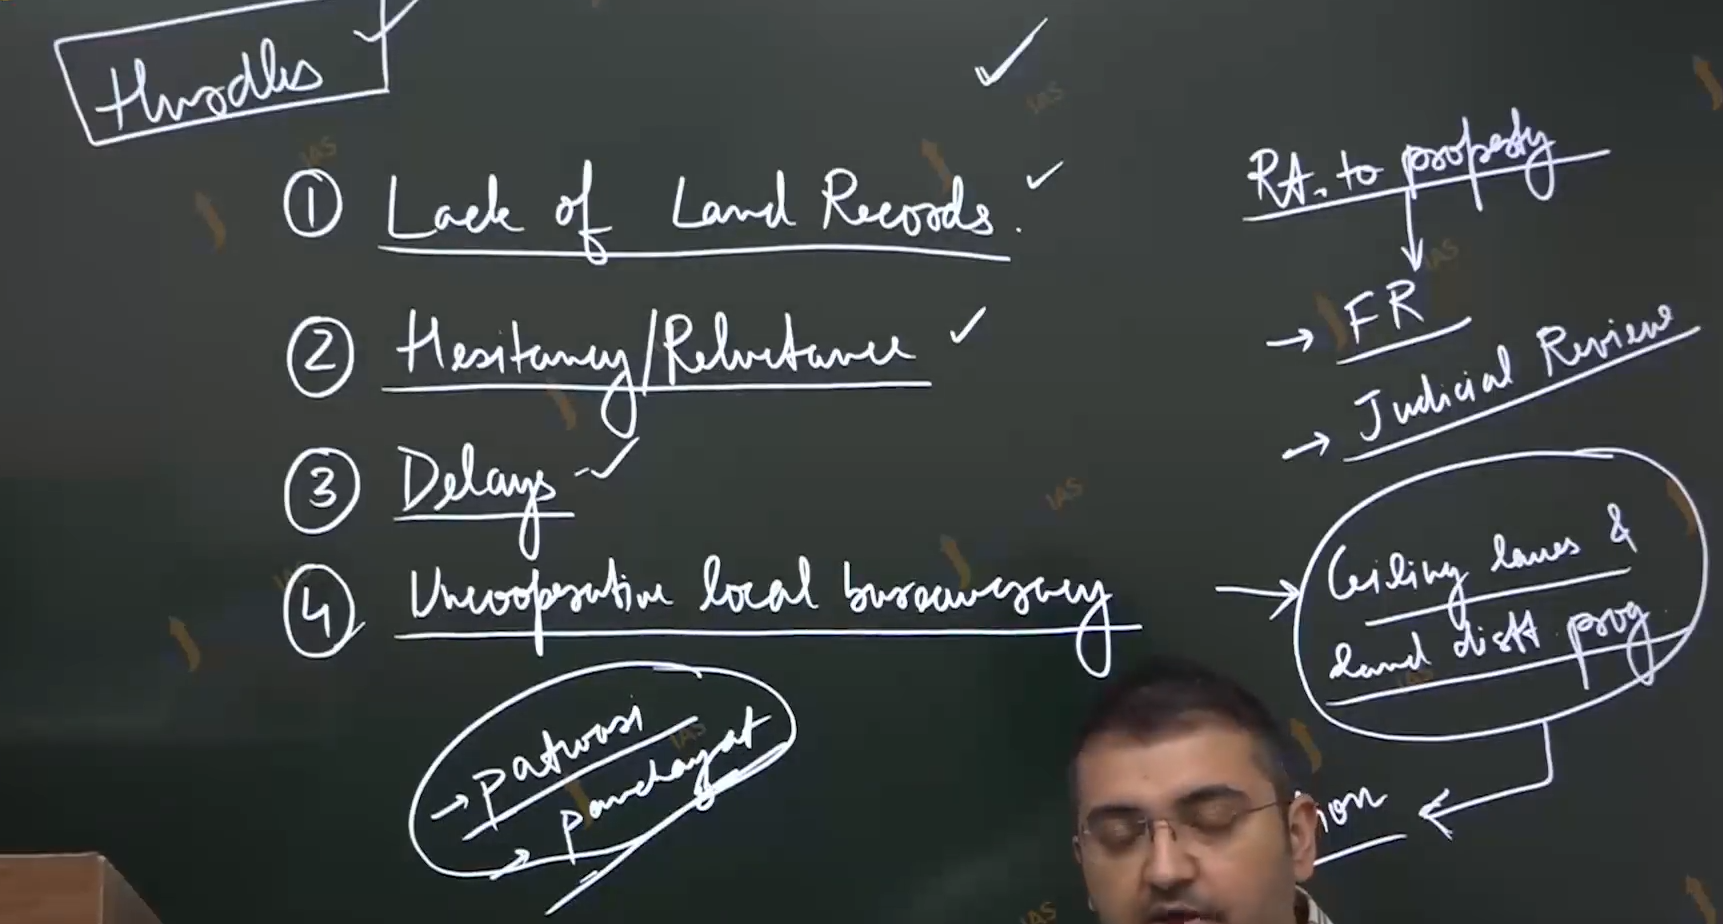 Hurdles
① Lack of Land Records.
② Hesitancy/Reluctance
③ Delays
④ Uncooperative local bureaucracy
→ patwari
→ panchayat
Rt. to property
→ FR
→ Judicial Review
→ Ceiling laws &
land distt prog
IAS
IAS
IAS
IAS
IAS
IAS
IAS